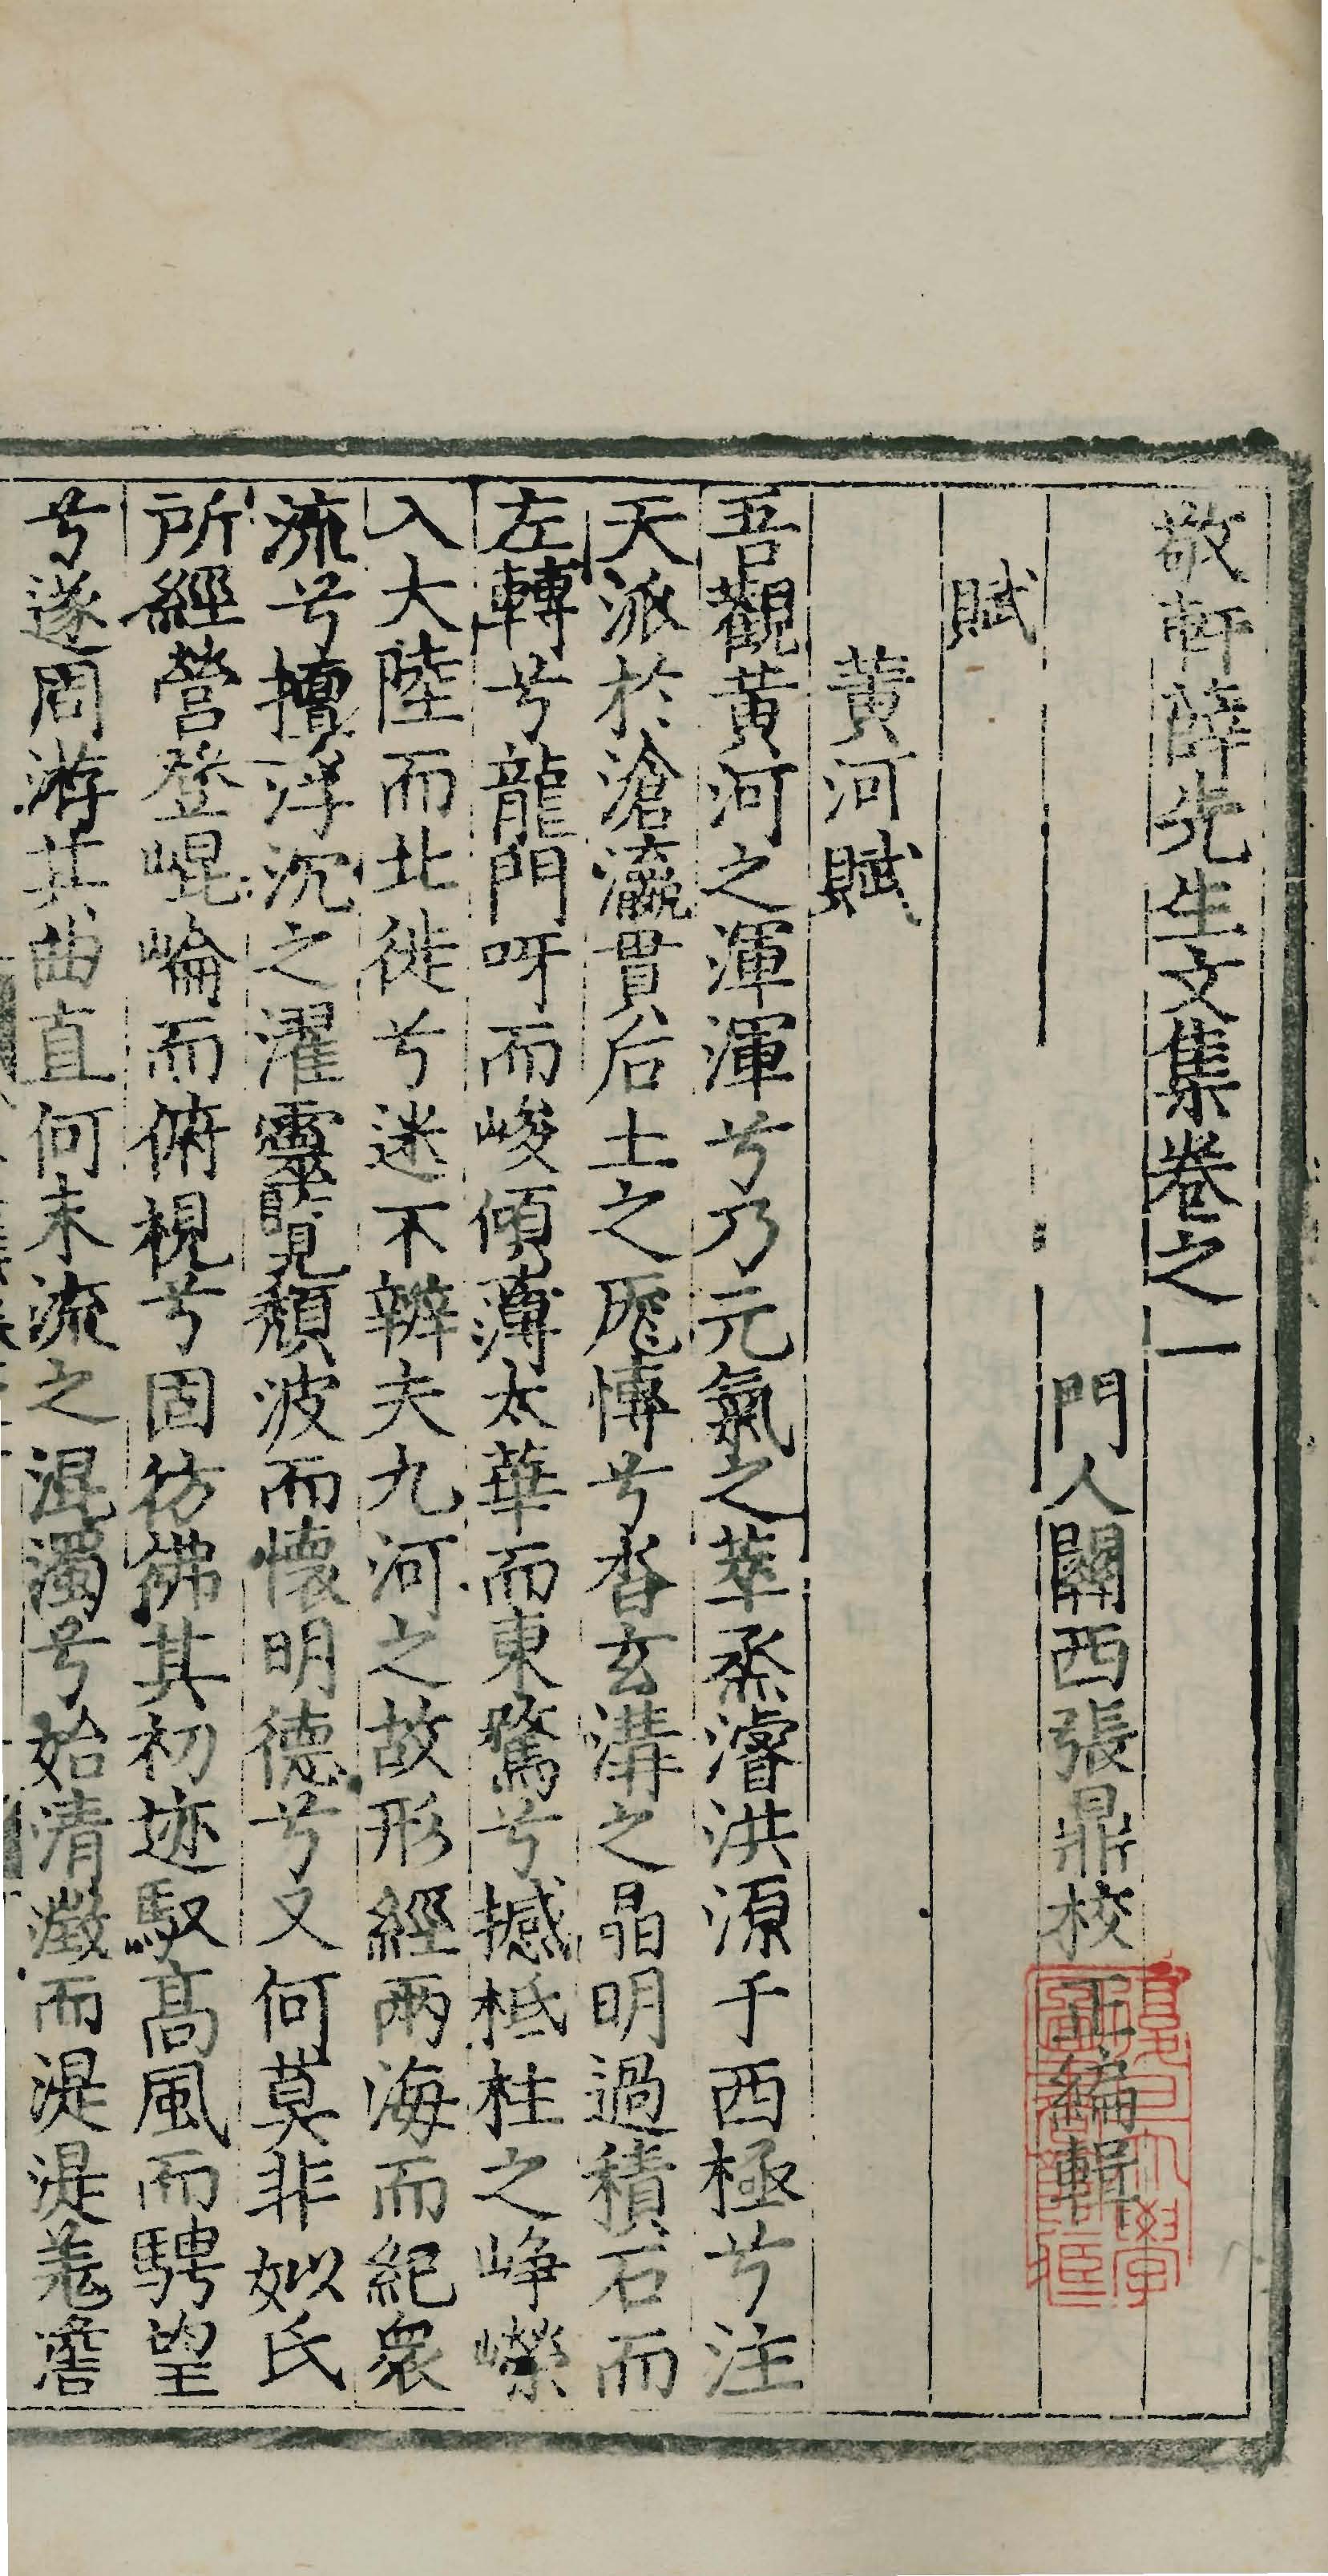 敬軒薛先生文集卷之一
門人關西張鼎校正編輯
賦
黃河賦
吾觀黃河之渾渾兮乃元氣之萃烝濬洪源于西極兮注
天派於滄瀛貫后土之庬慱兮沓玄溝之晶明過積石而
左轉兮龍門呀而峻傾薄太華而東騖兮撼柢柱之崢嶸
入大陸而北徙兮迷不辨夫九河之故形經兩海而紀衆
流兮擅浮沉之濯靈覩頹波而懷明德兮又何莫非姒氏
所經營登崐崘而俯視兮固彷彿其初迹馭髙風而騁望
兮遂周游其曲直何末流之混濁兮始清瀓而湜湜羌詹